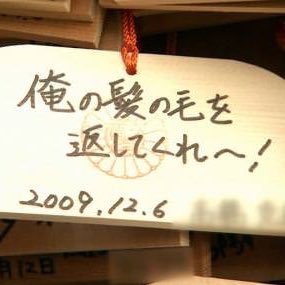 俺の髪の毛を
返してくれ〜!
2009.12.6
月12日